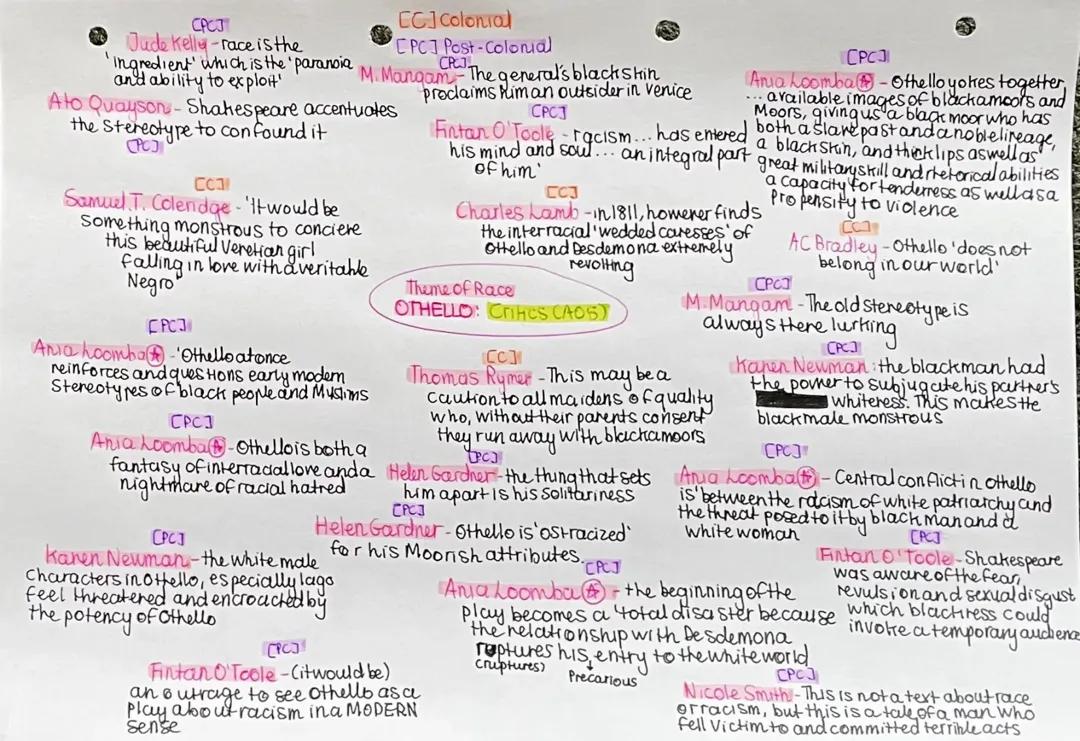 [CC] Colonial
[PC] Post-Colonial
[PC]
Jude Kelly - race is the
'ingredient' which is the 'paranoia
and ability to exploit'
Ato Quayson - Shakespeare accentuates
the stereotype to confound it
[PC]
[PC]
M. Mangam - The general's black skin
proclaims him an outsider in Venice
[PC]
Fintan O'Toole - racism... has entered
his mind and soul... an integral part
of him'
[PC]
Ania Loomba ☆ - Othello yokes together
... available images of blackamoors and
Moors, giving us a black moor who has
both a slave past and a noble lineage,
a black skin, and thick lips as well as
great military skill and rhetorical abilities
a capacity for tenderness as well as a
propensity to violence
[CC]
Samuel T. Coleridge - 'It would be
something monstrous to conciere
this beautiful Venetian girl
falling in love with a veritable
Negro'
[CC]
Charles Lamb - in 1811, however finds
the interracial 'wedded caresses' of
Othello and Desdemona extremely
revolting
[CC]
AC Bradley - Othello 'does not
belong in our world'
Theme of Race
OTHELLO: Critics (AO5)
[PC]
M. Mangam - The old stereotype is
always there lurking
[PC]
Ania Loomba ☆ - 'Othello at once
reinforces and questions early modern
Stereotypes of black people and Muslims
[CC]
Thomas Rymer - This may be a
caution to all maidens of quality
who, without their parents consent
they run away with blackamoors
[PC]
Karen Newman: the black man had
the power to subjugate his partner's
whiteness. This makes the
black male monstrous
[PC]
Ania Loomba ☆ - Othello is both a
fantasy of interracial love and a
nightmare of racial hatred
[PC]
Helen Gardner - the thing that sets
him apart is his solitariness
[PC]
Ania Loomba ☆ - Central conflict in Othello
is 'between the racism of white patriarchy and
the threat posed to it by black man and a
white woman
[PC]
Helen Gardner - Othello is 'ostracized'
for his Moorish attributes.
[PC]
Karen Newman - the white male
characters in Othello, especially Iago
feel threatened and encrouched by
the potency of Othello
[PC]
Ania Loomba ☆ - the beginning of the
play becomes a 'total disaster because
the relationship with Desdemona
ruptures his entry to the white world
(ruptures) Precarious
[PC]
Fintan O'Toole - Shakespeare
was aware of the fear,
revulsion and sexual disgust
which blackness could
invoke a temporary audience
[PC]
Fintan O'Toole - (it would be)
an outrage to see Othello as a
play about racism in a MODERN
sense
[PC]
Nicole Smith - This is not a text about race
or racism, but this is a tale of a man who
fell victim to and committed terrible acts